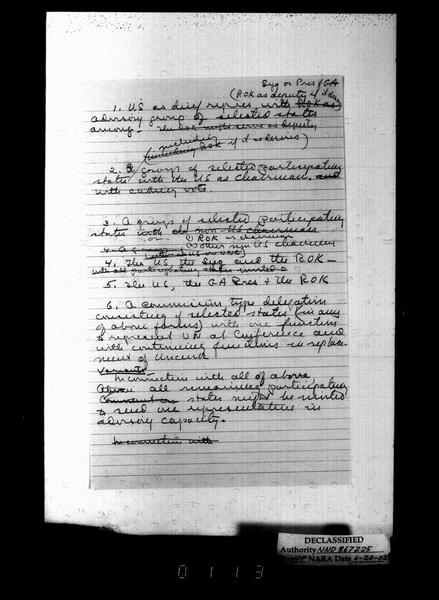 Syg or Pres of GA
(ROK as deputy if it des
1. US as chief repres. with ROK as
advisory group of selected states
among. The ROK might serve as deputy
including
(including ROK if it so desires)
2. A group of selected participating
states with the US as Chairman. and
with casting vote
3. A group of selected participating
states with non US chairman
or 1) ROK as chairman
2) other non US chairman
4. A
4. The US, the Syg and the ROK —
with all participating states invited
5. The US, the GA Pres & the ROK
6. A commission type delegation
consisting of selected states (in any
of above forms) with one function
to represent UN at Conference and
with continuing functions in replace-
ment of Uncurk
Variants
In connection with all of above
all remaining participating
states might be invited
to send one representative in
advisory capacity.
In connection with
DECLASSIFIED
Authority NND 867225
NARA Date 6-20-02
0113